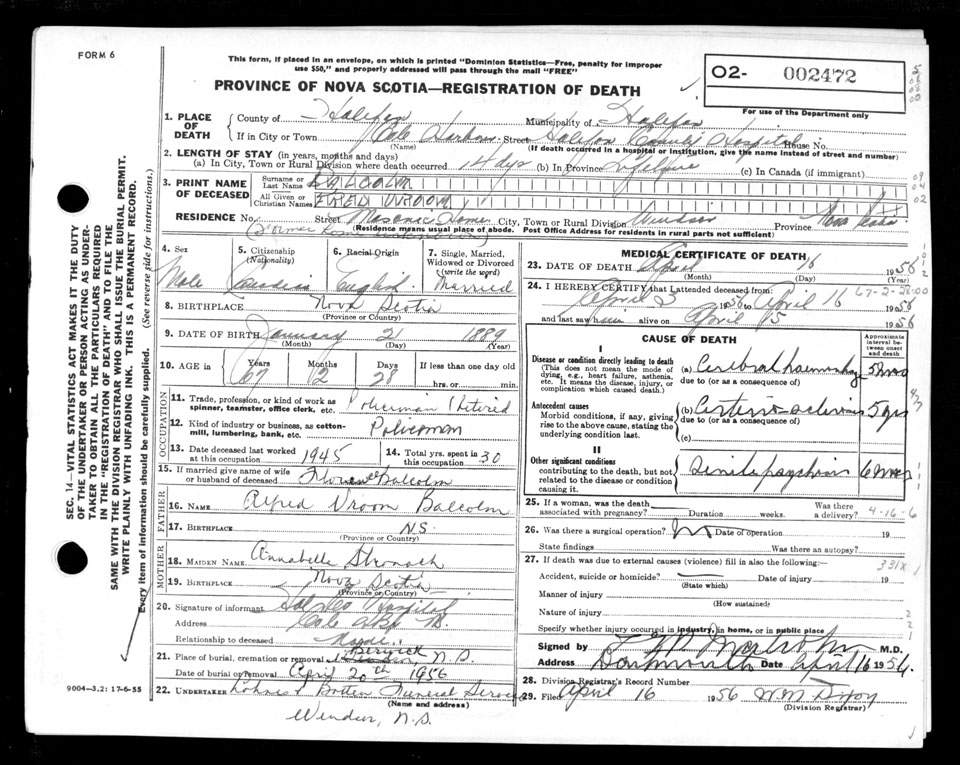 FORM 6
This form, if placed in an envelope, on which is printed "Dominion Statistics—Free, penalty for improper
use $50," and properly addressed will pass through the mail "FREE"
PROVINCE OF NOVA SCOTIA—REGISTRATION OF DEATH
O2- 002472
For use of the Department only
1. PLACE OF DEATH
County of Halifax Municipality of Halifax
If in City or Town Cole Harbour Street Halifax County Hospital House No.
(Name) (If death occurred in a hospital or institution, give the name instead of street and number)
2. LENGTH OF STAY (in years, months and days)
(a) In City, Town or Rural Division where death occurred 14 dys (b) In Province (c) In Canada (if immigrant)
3. PRINT NAME OF DECEASED
Surname or Last Name BALCOLM
All Given or Christian Names FRED VROOM
RESIDENCE No. Street Masonic Home City, Town or Rural Division Windsor Province Nova Scotia
(Residence means usual place of abode. Post Office Address for residents in rural parts not sufficient)
4. Sex
Male
5. Citizenship (Nationality)
Canadian
6. Racial Origin
English
7. Single, Married, Widowed or Divorced (write the word)
Married
8. BIRTHPLACE Nova Scotia
(Province or Country)
9. DATE OF BIRTH January 21 1889
(Month) (Day) (Year)
10. AGE in Years Months Days If less than one day old
67 2 hrs. or min.
OCCUPATION
11. Trade, profession, or kind of work as spinner, teamster, office clerk, etc. Policeman (retired
12. Kind of industry or business, as cotton-mill, lumbering, bank, etc. Policeman
13. Date deceased last worked at this occupation 1945
14. Total yrs. spent in this occupation 30
15. If married give name of wife or husband of deceased Florence Balcolm
FATHER
16. NAME Alfred Vroom Balcolm
17. BIRTHPLACE N.S.
(Province or Country)
MOTHER
18. MAIDEN NAME Annabelle Stronach
19. BIRTHPLACE Nova Scotia
(Province or Country)
20. Signature of informant Hospital
Address Cole
Relationship to deceased None
21. Place of burial, cremation or removal Berwick, N.S.
Date of burial or removal April 20th 1956
22. UNDERTAKER Funeral Service
(Name and address)
Windsor, N.S.
9004—3.2: 17-6-55
MEDICAL CERTIFICATE OF DEATH
23. DATE OF DEATH April 16 1956
(Month) (Day) (Year)
24. I HEREBY CERTIFY that I attended deceased from:
April 3 1956 to April 16 1956
67-2-26:00
and last saw him alive on April 15 1956
CAUSE OF DEATH
Approximate interval between onset and death
I
Disease or condition directly leading to death
(This does not mean the mode of dying, e.g., heart failure, asthenia, etc. It means the disease, injury, or complication which caused death.)
(a) Cerebral haemorrhage
due to (or as a consequence of)
Antecedent causes
Morbid conditions, if any, giving rise to the above cause, stating the underlying condition last.
(b) Arterio-sclerosis 5 yrs
due to (or as a consequence of)
(c)
II
Other significant conditions
contributing to the death, but not related to the disease or condition causing it.
Senile psychosis 6 mos
25. If a woman, was the death associated with pregnancy? Duration weeks. Was there a delivery?
4-16-6
26. Was there a surgical operation? Date of operation 19
State findings Was there an autopsy?
27. If death was due to external causes (violence) fill in also the following:
331X
Accident, suicide or homicide? Date of injury 19
(State which)
Manner of injury
(How sustained)
Nature of injury
Specify whether injury occurred in industry, in home, or in public place
Signed by M.D.
Address Dartmouth Date April 16 1956
28. Division Registrar's Record Number
29. Filed April 16 1956
(Division Registrar)
SEC. 14—VITAL STATISTICS ACT MAKES IT THE DUTY
OF THE UNDERTAKER OR PERSON ACTING AS UNDER-
TAKER TO OBTAIN ALL THE PARTICULARS REQUIRED
IN THE "REGISTRATION OF DEATH" AND TO FILE THE
SAME WITH THE DIVISION REGISTRAR WHO SHALL ISSUE THE BURIAL PERMIT.
WRITE PLAINLY WITH UNFADING INK. THIS IS A PERMANENT RECORD.
Every item of information should be carefully supplied. (See reverse side for instructions.)